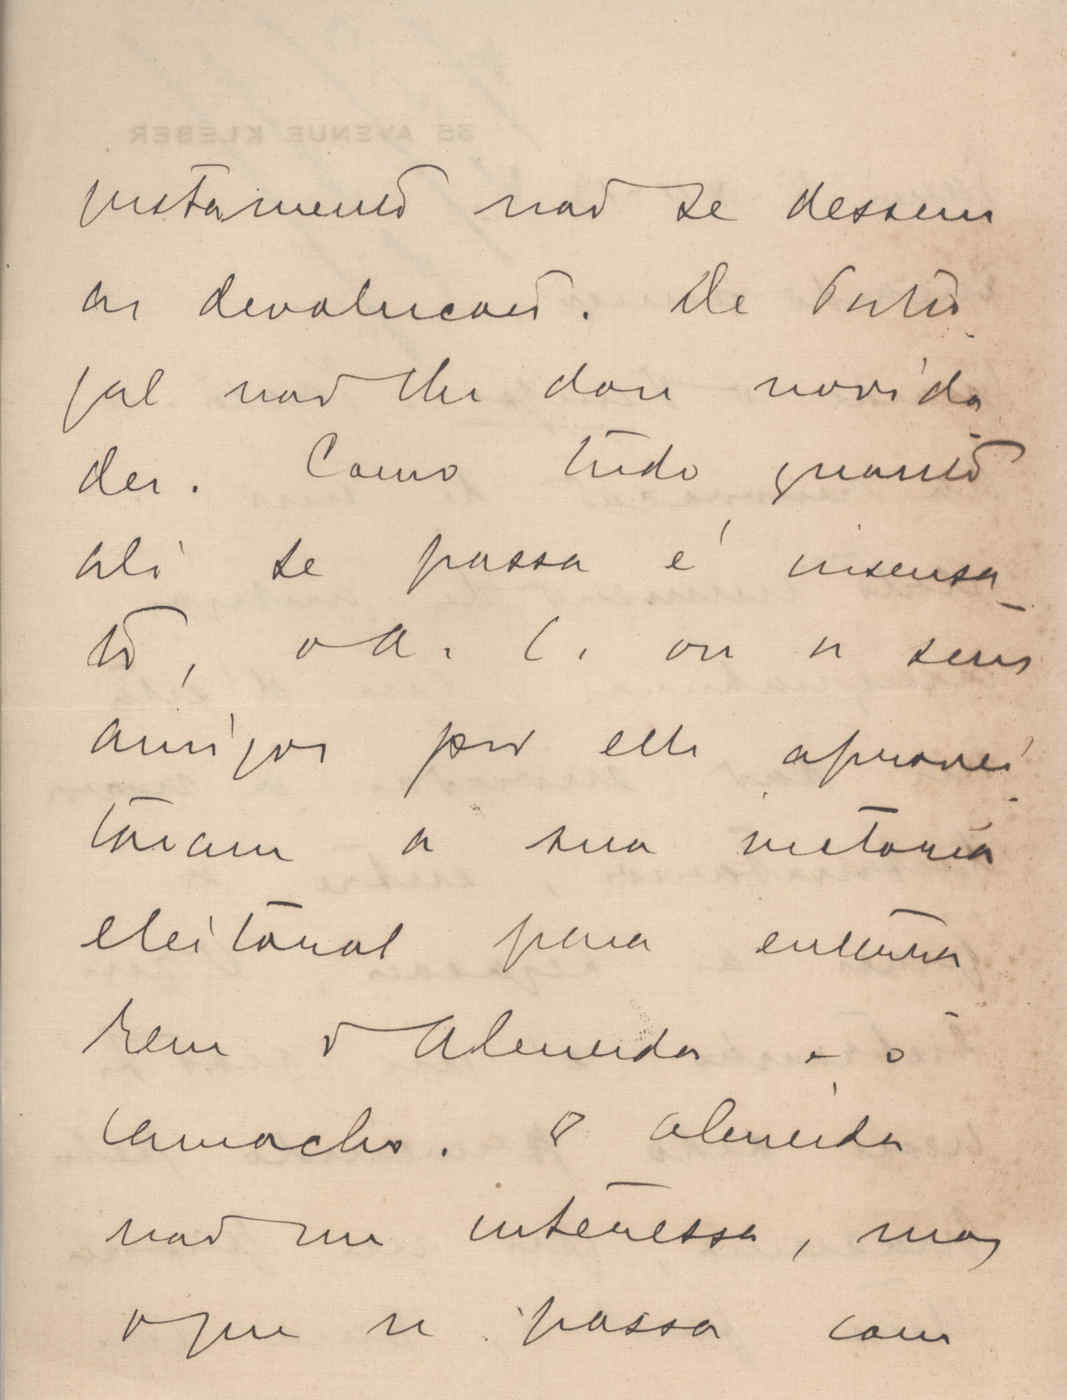 35 AVENUE KLÉBER
justamente não se dessem
as devoluções. De Portu
gal não lhe dou novida
des. Como tudo quanto
ali se passa é insensa
to, o A. C. ou os seus
amigos por elle aprovei
taram a sua victoria
eleitoral para
rem o Almeida e o
Camacho. O Almeida
não me interessa, mas
o que se passa com